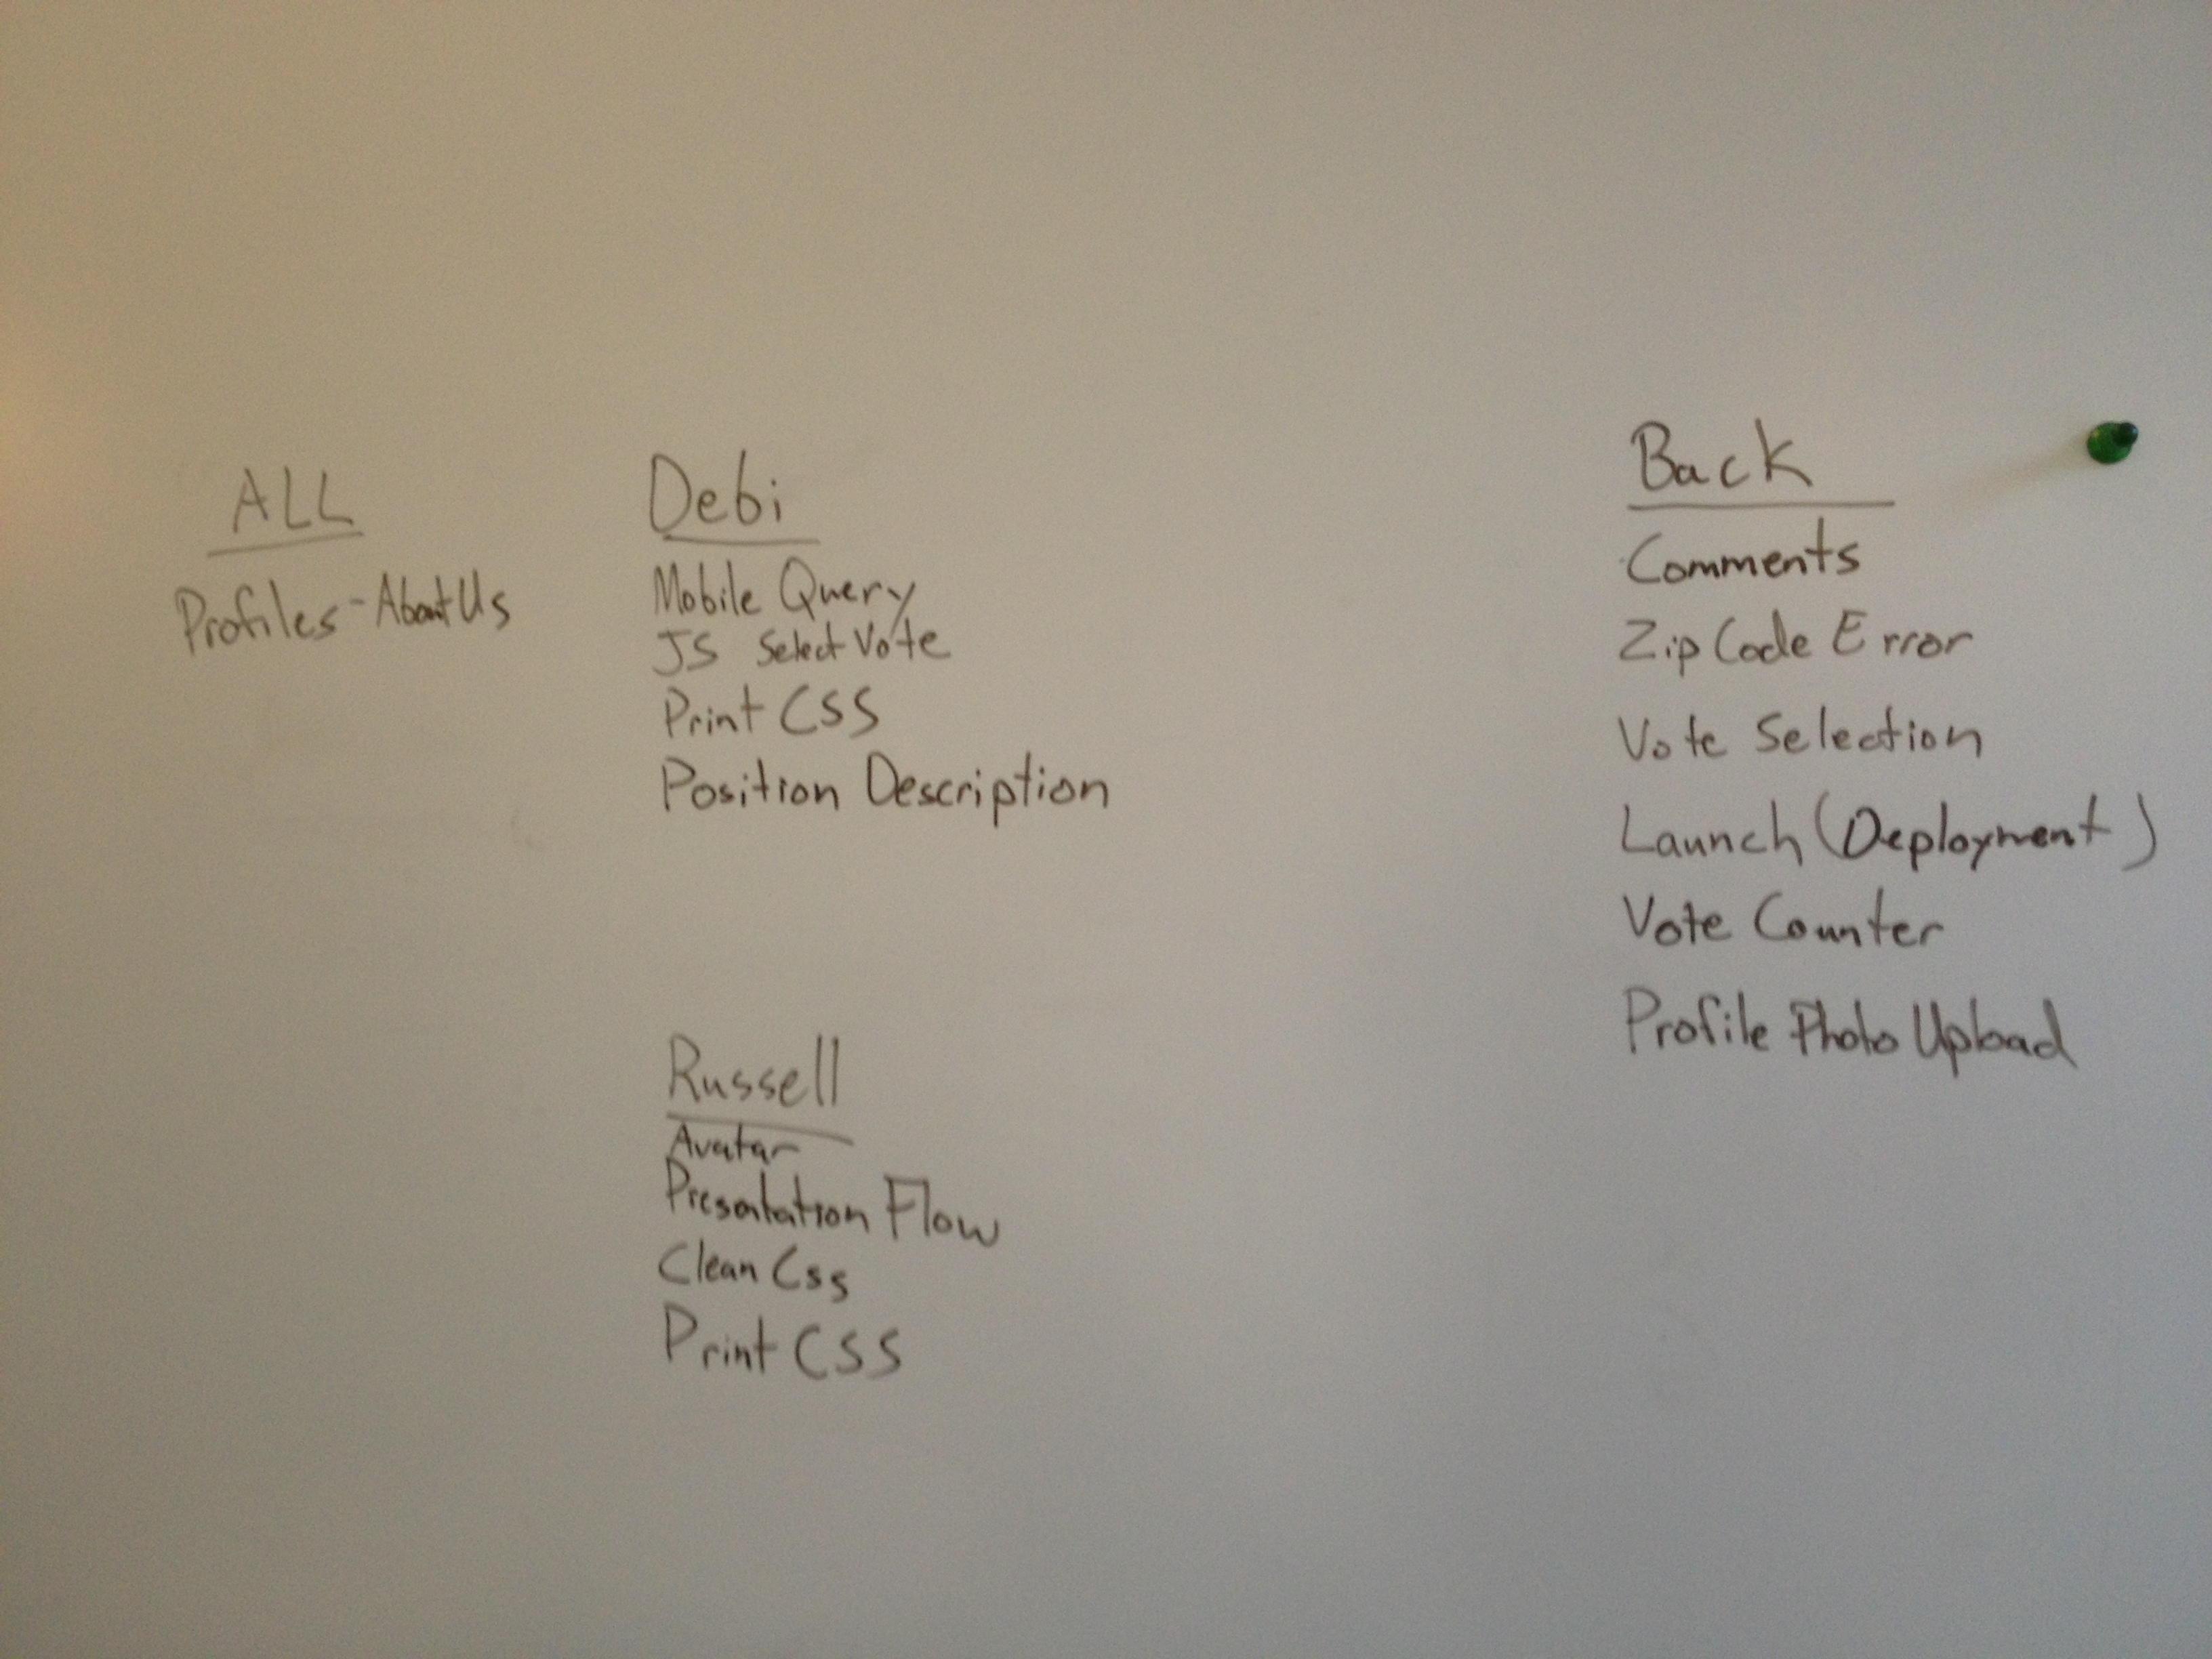 ALL
Profiles - About Us
Debi
Mobile Query
JS Select Vote
Print CSS
Position Description
Russell
Avatar
Presentation Flow
Clean Css
Print CSS
Back
Comments
Zip Code Error
Vote Selection
Launch (Deployment)
Vote Counter
Profile Photo Upload